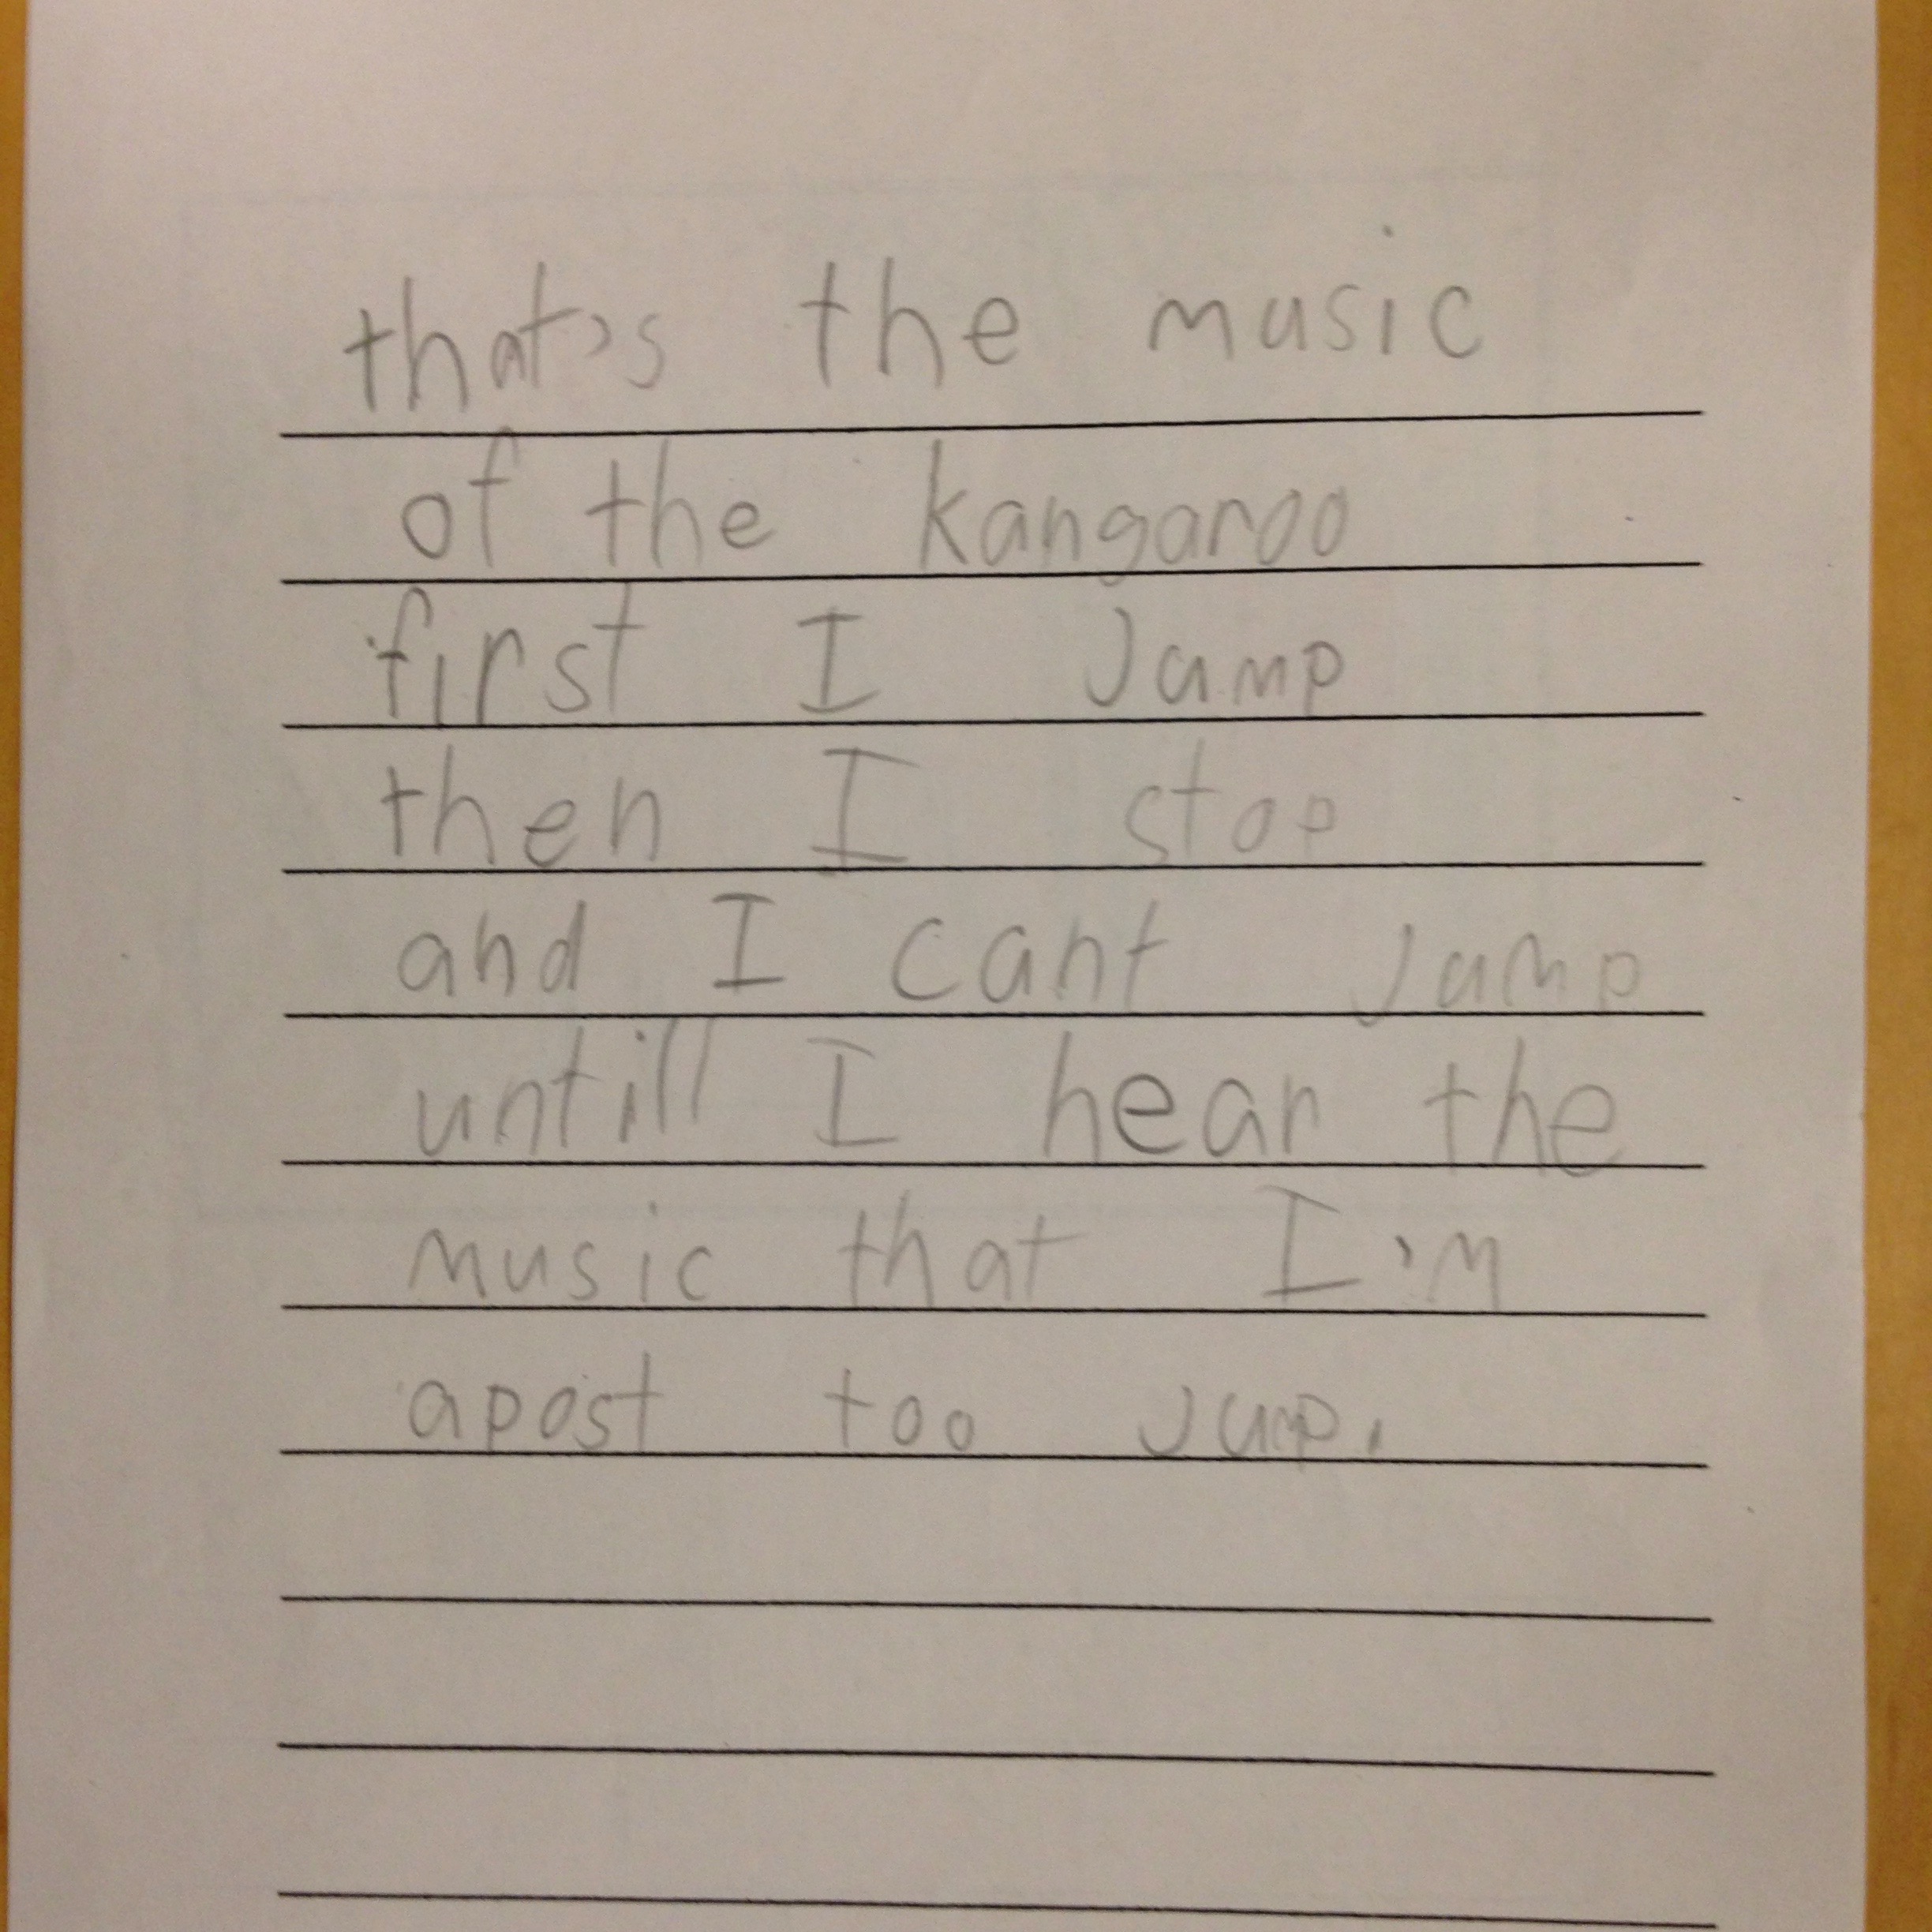 that's the music
of the kangaroo
first I Jump
then I stop
and I cant Jump
untill I hear the
music that I'm
apost too jump.